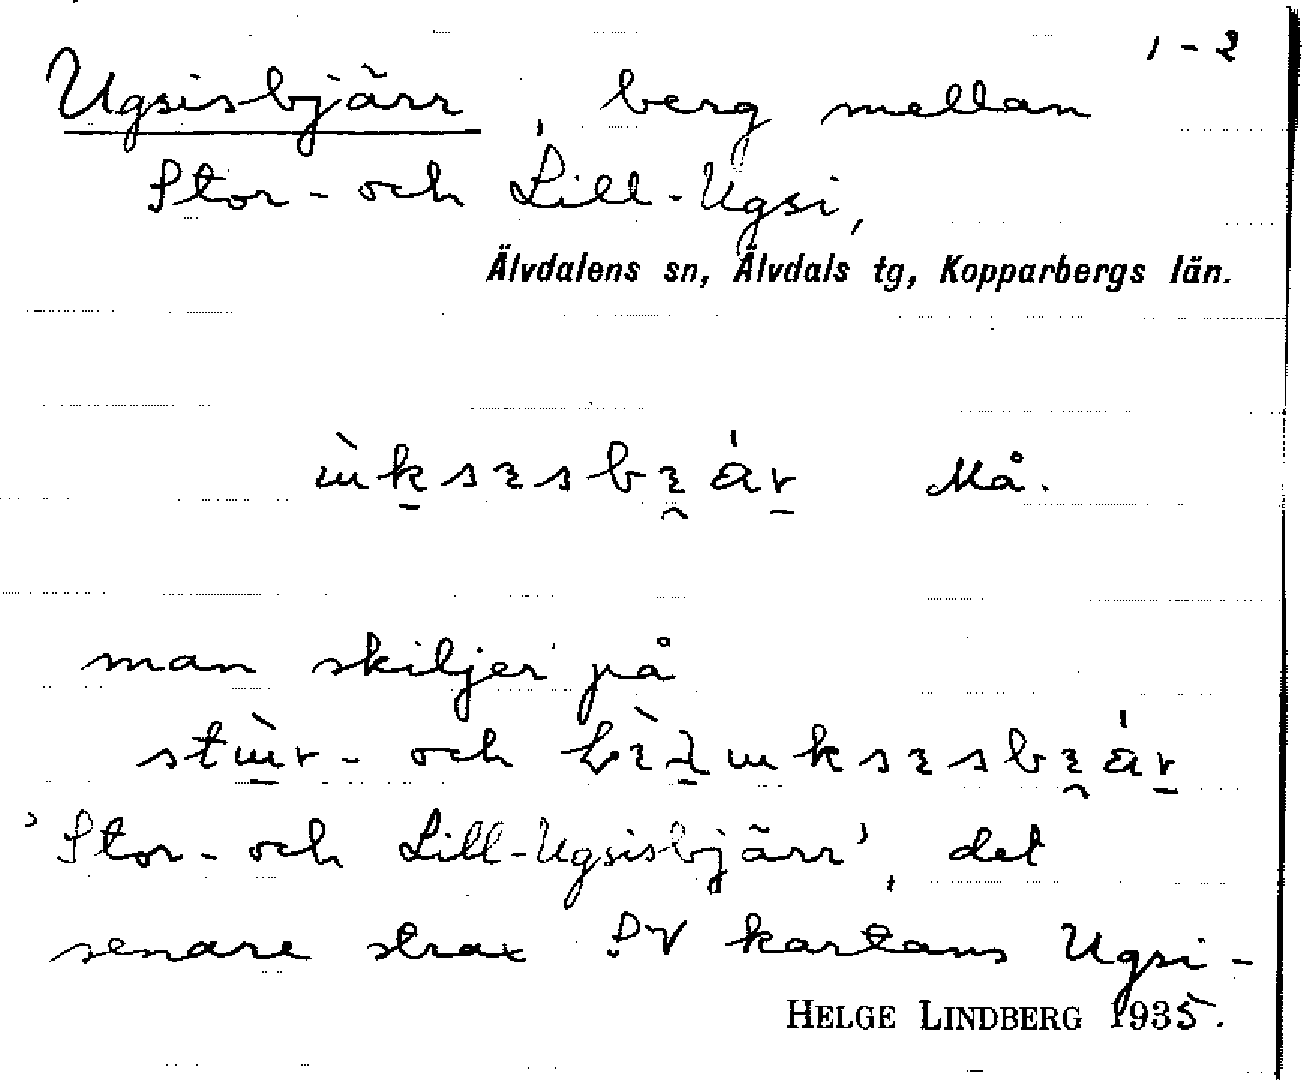 1-2
Ugsisbjärr, berg mellan
Stor- och Lill-Ugsi,
Älvdalens sn, Älvdals tg, Kopparbergs län.
Må.
man skiljer på
och
'Stor- och Lill-Ugsisbjärr', det
senare strax kartans Ugsi-
HELGE LINDBERG 1935.